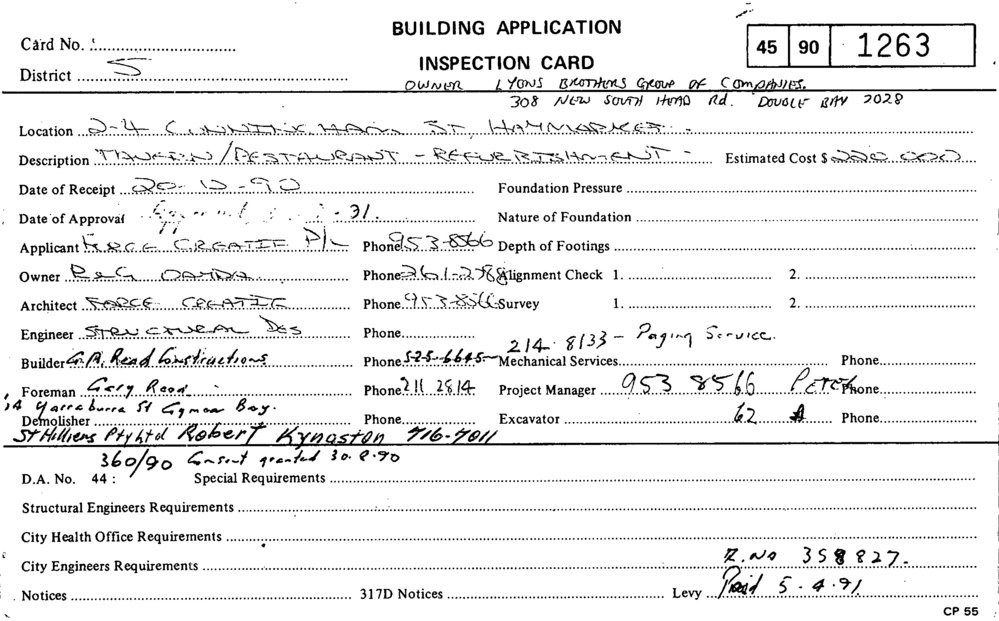 BUILDING APPLICATION
Card No. 45 90 1263
INSPECTION CARD
District 5
OWNER LYONS BROTHERS GROUP OF COMPANIES.
308 NEW SOUTH HEAD Rd. DOUBLE BAY 2028
Location 2-4 ST, HAYMARKET.
Description TAVERN/RESTAURANT - REFURBISHMENT - Estimated Cost $ 220 000
Date of Receipt 20-12-90 Foundation Pressure
Date of Approval 31. Nature of Foundation
Applicant CREATIF P/L Phone 953-8566 Depth of Footings
Owner R&G Phone 261-2788 Alignment Check 1. 2.
Architect FORCE CREATIF Phone 953-8566 Survey 1. 2.
Engineer STRUCTURAL DES Phone
214 8133 - Paging Service.
Builder G.A. Read Constructions Phone 525-6645 Mechanical Services Phone
Foreman Gary Read Phone 211 2814 Project Manager 953 8566 PETER Phone
14 Yarraburra St Gymea Bay.
Demolisher Phone Excavator 62 Phone
St Hilliers Pty Ltd Robert Kyngston 716-7011
360/90 Consent granted 30.8.90
D.A. No. 44: Special Requirements
Structural Engineers Requirements
City Health Office Requirements
City Engineers Requirements Z.No 358827.
Notices 317D Notices Levy Paid 5.4.91
CP 55